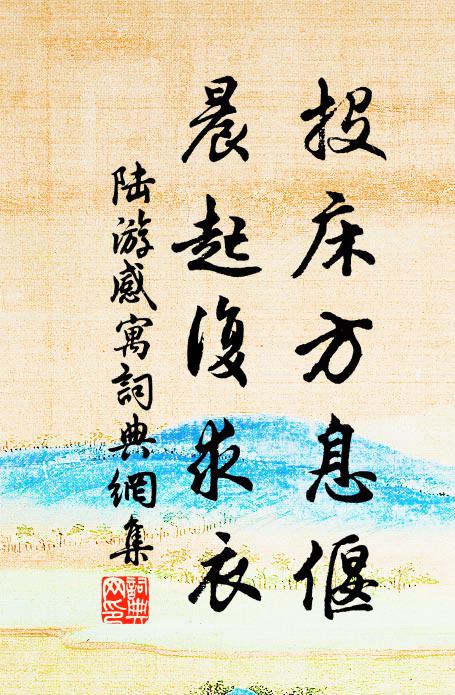 投床方息偃
晨起復求衣
陆游感寓詞典網集
詞典
网印